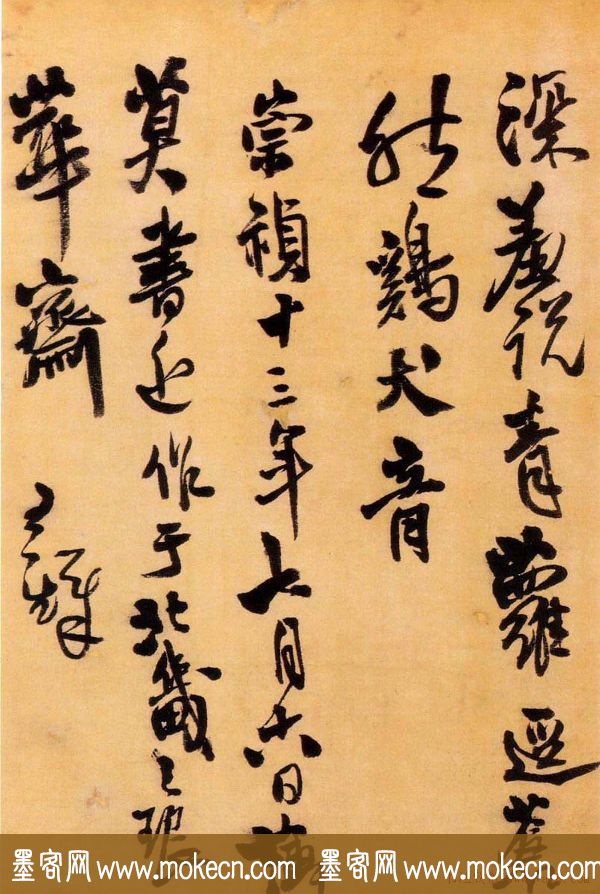 深羞说青蘿逕蒼
然鷄犬音
崇禎十三年七月六日
莫書近作于北畿之琅
華齋 王鐸
墨客网 www.mokecn.com 墨客网 www.mokecn.com